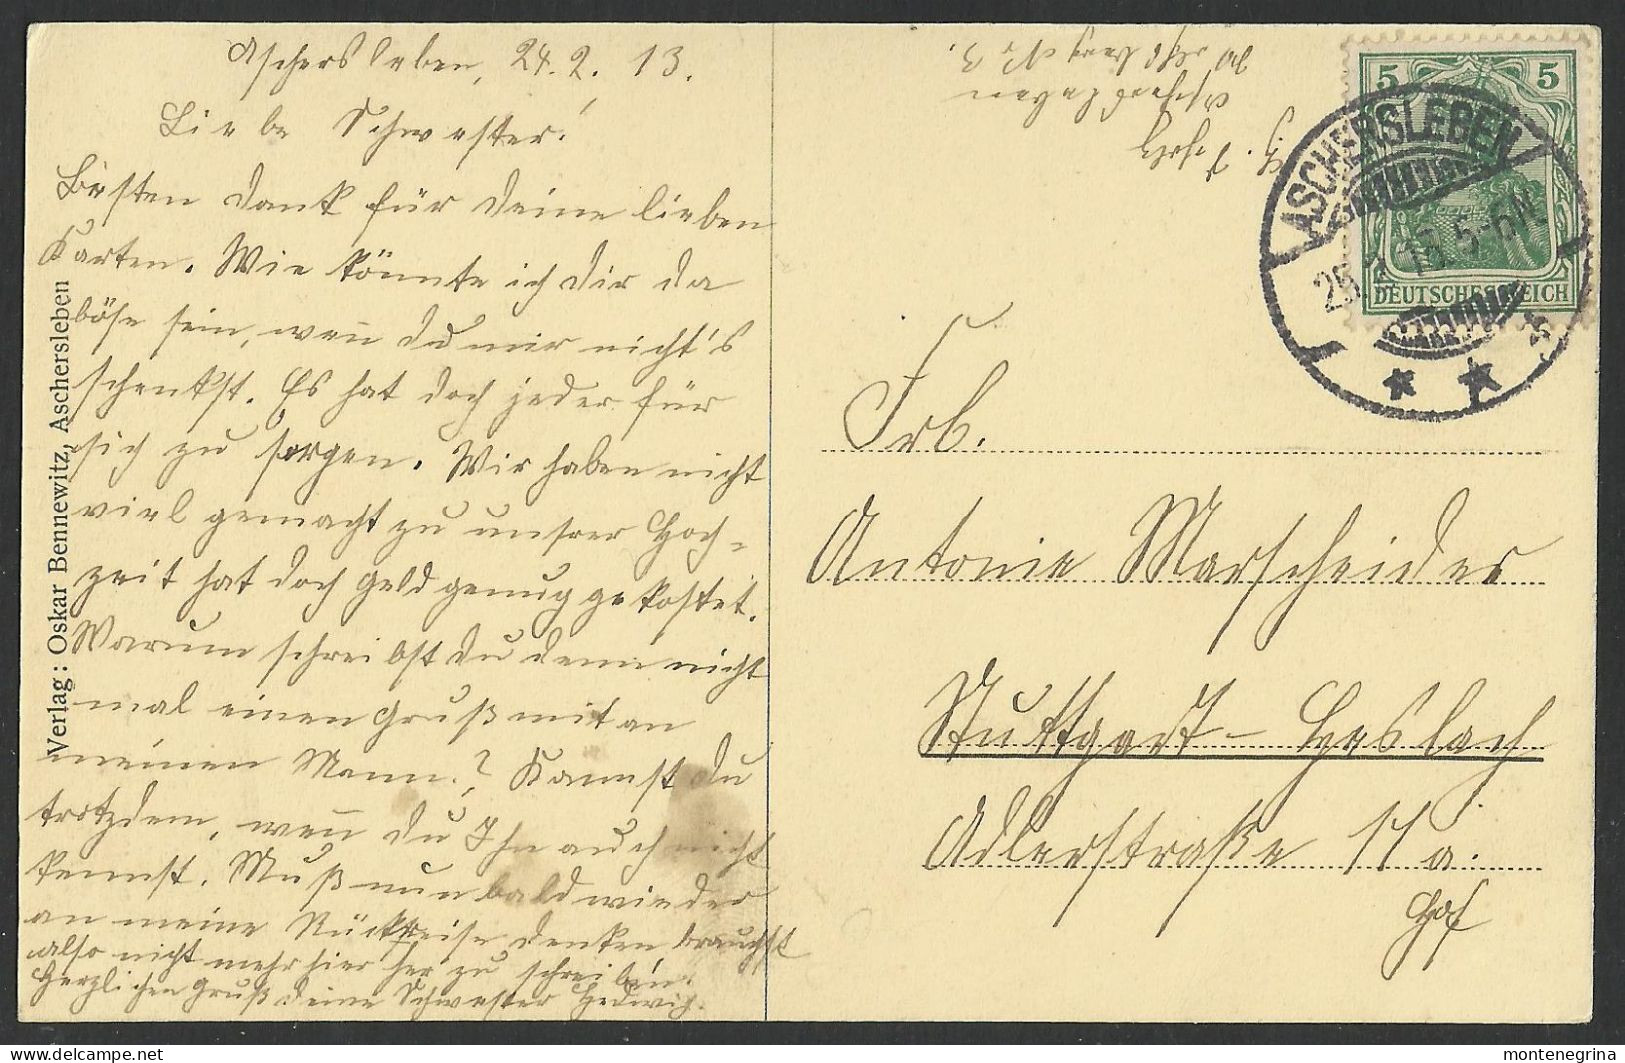 Aschersleben, 24.2.13.
Liebe Schwester!
Besten Dank für deine lieben
Karten. Wie könnte ich dir da
böse sein, wenn du mir nicht's
schenkst. Es hat doch jeder für
sich zu sorgen. Wir haben nicht
viel gemacht zu unsrer Hoch-
zeit hat doch Geld genug gekostet.
Warum schreibst du denn nicht
mal einen Gruß mit an
meinen Mann? Kannst du
trotzdem, wenn du Ihn auch nicht
kennst. Muß nun bald wieder
an meine Rückreise denken brauchst
also nicht mehr hier her zu schreiben.
Herzlichen Gruß deine Schwester Hedwig.
Verlag: Oskar Bennewitz, Aschersleben
5 5
DEUTSCHES REICH
ASCHERSLEBEN
25.2.13.5-6N
Frl.
Antonie Marscheider
Stuttgart-Heslach
Adlerstraße 11a.
Hof
montenegrina